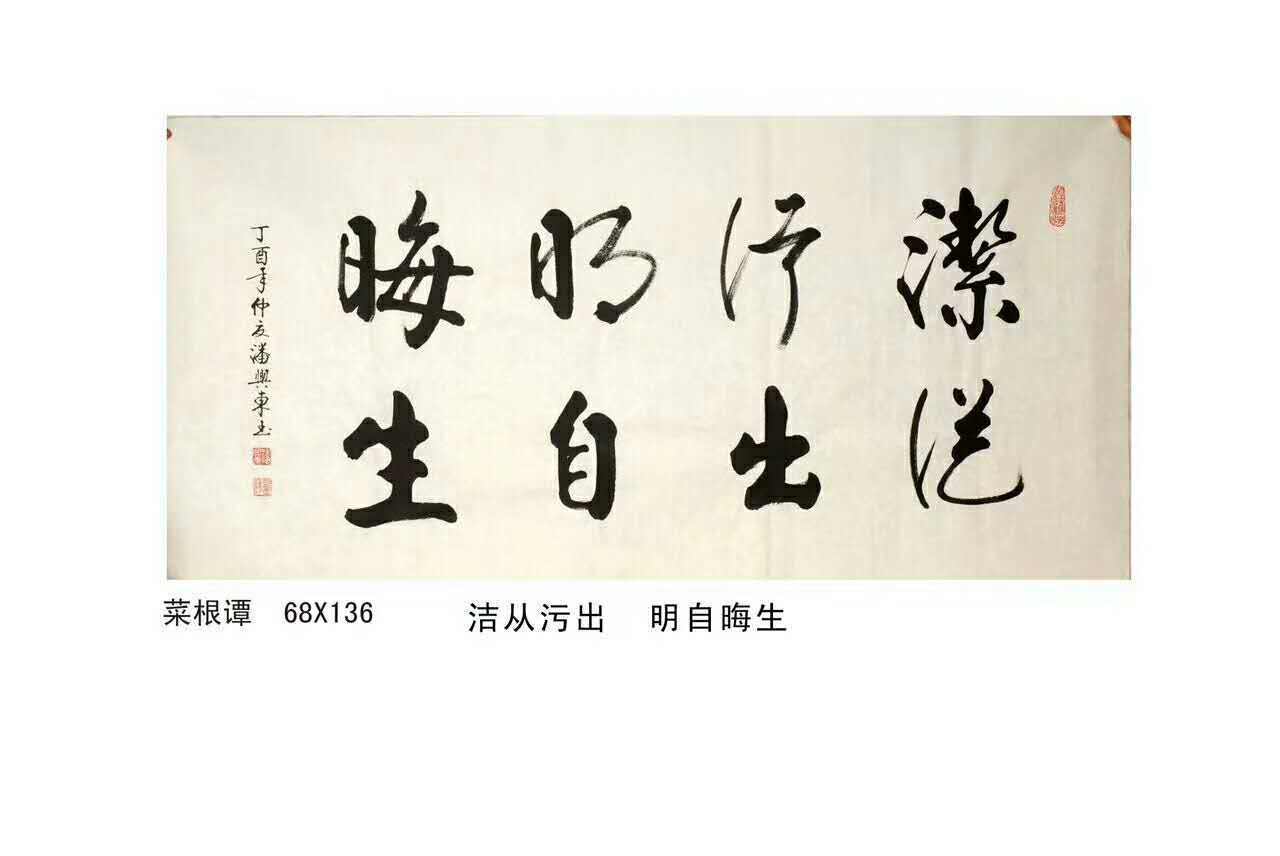 潔從
污出
明自
晦生
丁酉年仲夏潘興東书
菜根谭 68X136 洁从污出 明自晦生